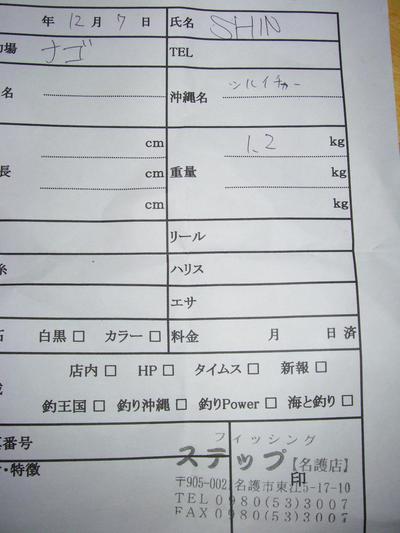 年 12 月 7 日 氏名 SHIN
場 ナゴ TEL
名 沖縄名 シルイチャー
cm 1.2 kg
長 cm 重量 kg
cm kg
リール
糸 ハリス
エサ
白黒 □ カラー □ 料金 月 日 済
店内 □ HP □ タイムス □ 新報 □
釣王国 □ 釣り沖縄 □ 釣りPower □ 海と釣り □
番号
・特徴
フィッシング
ステップ【名護店】
印
〒905-002 名護市東江5-17-10
TEL 0980(53)3007
FAX 0980(53)3007